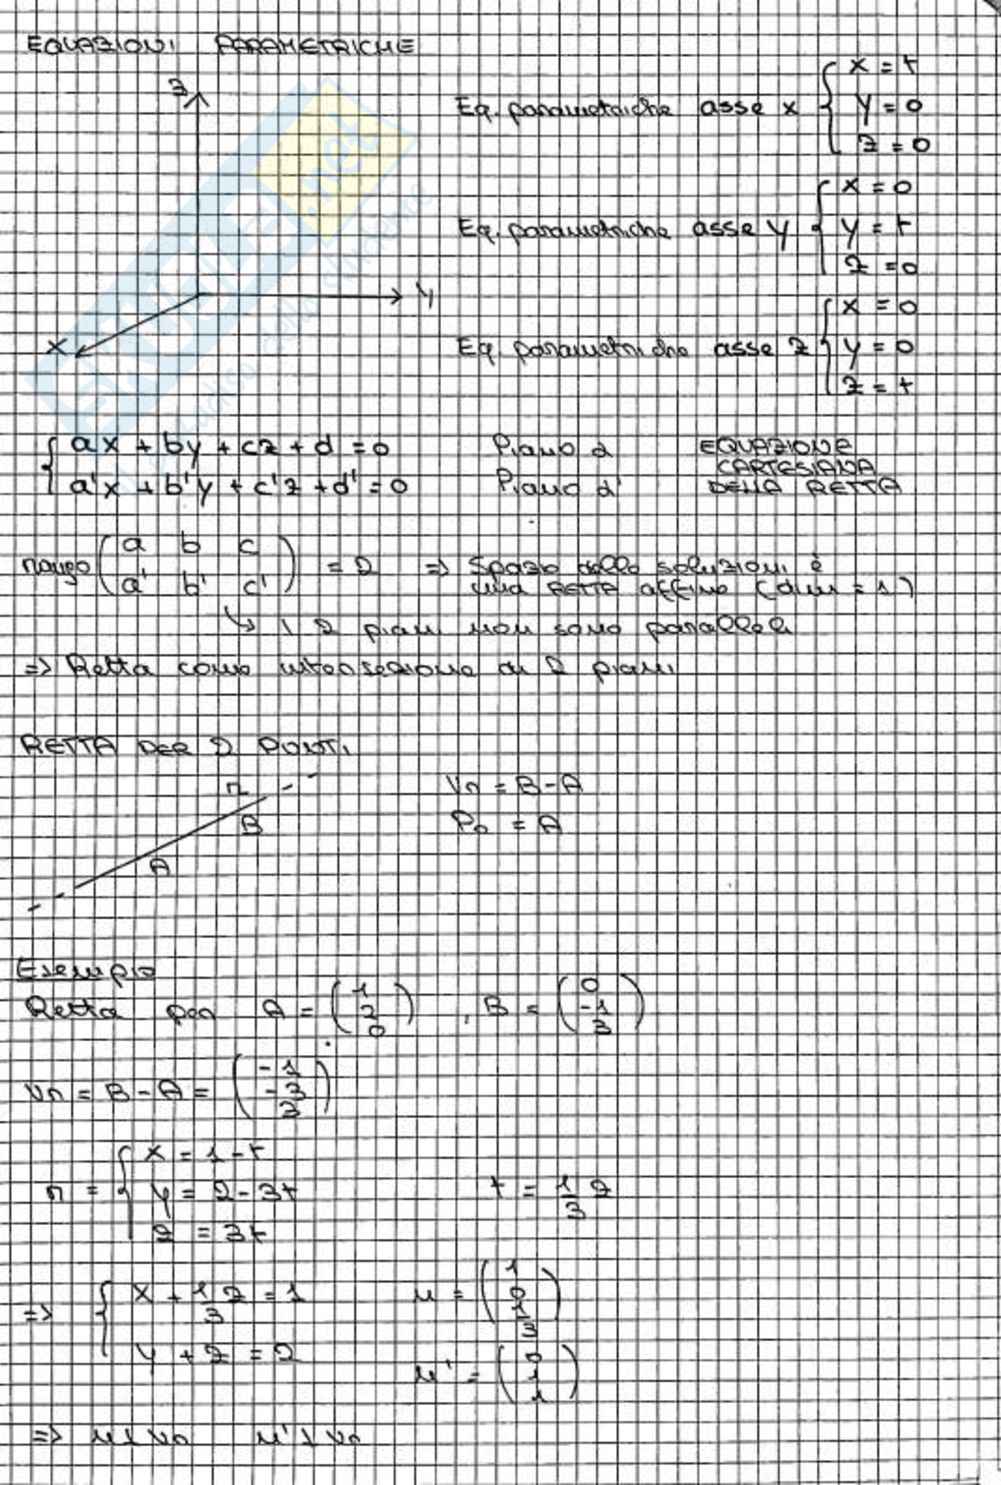 EQUAZIONI PARAMETRICHE
z
Eq. parametriche asse x { x = t
y = 0
z = 0
Eq. parametriche asse y { x = 0
y = t
z = 0
y
x
Eq. parametriche asse z { x = 0
y = 0
z = t
{ ax + by + cz + d = 0 Piano α EQUAZIONE
CARTESIANA
a'x + b'y + c'z + d' = 0 Piano α' DELLA RETTA
rango ( a b c
a' b' c' ) = 2 => Spazio delle soluzioni è
una RETTA affine (dim = 1)
↳ i 2 piani non sono paralleli
=> Retta come intersezione di 2 piani
RETTA PER 2 PUNTI
r
B
A
Vr = B-A
Po = A
Esempio
Retta per A = ( 1
2
0 ) , B = ( 0
-1
3 )
Vr = B-A = ( -1
-3
3 )
r = { x = 1-t
y = 2-3t
z = 3t
t = 1/3 z
=> { x + 1/3 z = 1
y + z = 2
u = ( 1
0
1/3 )
u' = ( 0
1
1 )
=> u ⊥ Vr u' ⊥ Vr